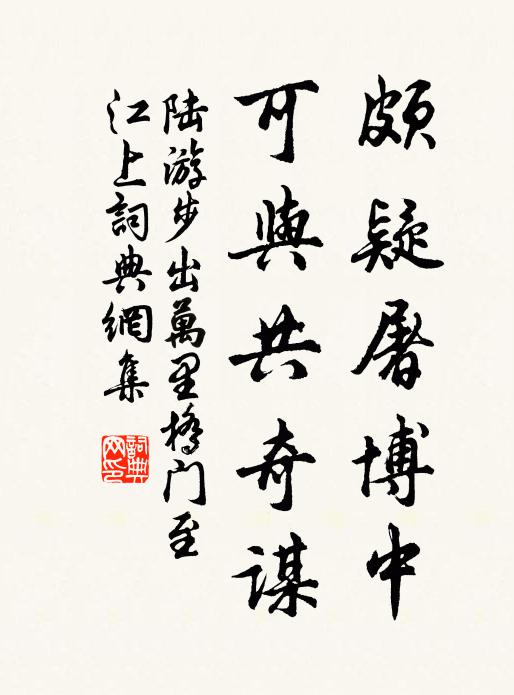 頗疑屠博中
可與共奇謀
陆游步出萬里橋门至
江上詞典網集
詞典
网印